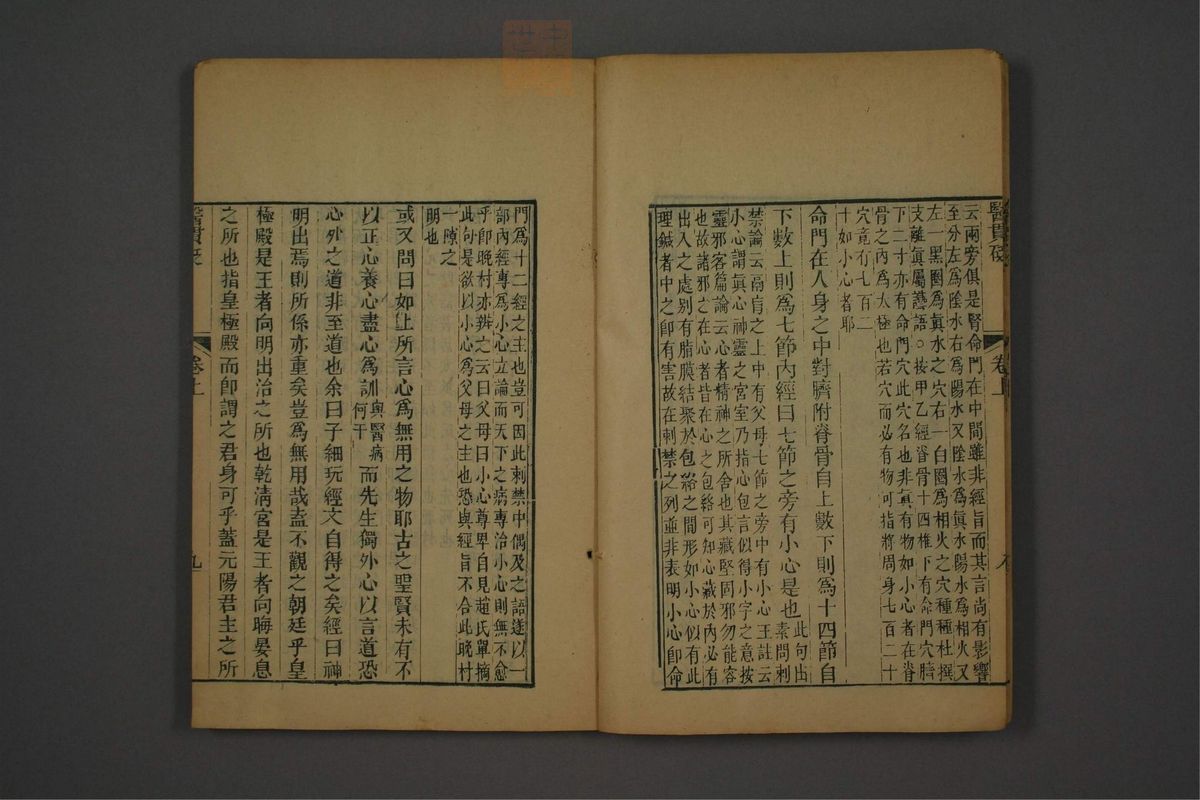 醫貫砭
卷上
云兩旁俱是腎命門在中間雖非經旨而其言尚有影響
至分左為陰水右為陽水又陰水為眞水陽水為相火又
左一黑圈為眞水之穴右一白圈為相火之穴種種杜撰
支離眞屬囈語○按甲乙經脊骨十四椎下有命門穴臍
下二寸亦有命門穴此穴名也非眞有物如小心者在脊
骨之內為太極也若穴而必有物可指將周身七百二十
穴竟有七百二
十如小心者耶
命門在人身之中對臍附脊骨自上數下則為十四節自
下數上則為七節內經曰七節之旁有小心是也 此句出素問刺
禁論云鬲肓之上中有父母七節之旁中有小心王註云
小心謂眞心神靈之宮室乃指心包言似得小字之意按
靈邪客篇論云心者精神之所舍也其藏堅固邪勿能容
也故諸邪之在心者皆在心之包絡可知心藏於內必有
出入之處別有脂膜結聚於包絡之間形如小心似有此
理鍼者中之卽有害故在刺禁之列並非表明小心卽命
門為十二經之主也豈可因此刺禁中偶及之語遂以一
部內經專為小心立論而天下之病專治小心則無不愈
乎卽晚村亦辨之云曰父母曰小心尊卑自見趙氏單摘
此句是欲以小心為父母之主也恐與經旨不合此晚村
一隙之
明也
或又問曰如上所言心為無用之物耶古之聖賢未有不
以正心養心盡心為訓 與醫病何干 而先生獨外心以言道恐
心外之道非至道也余曰子細玩經文自得之矣經曰神
明出焉則所係亦重矣豈為無用哉盍不觀之朝廷乎皇
極殿是王者向明出治之所也乾清宮是王者向晦晏息
之所也指皇極殿而卽謂之君身可乎蓋元陽君主之所
醫貫砭
卷上
九